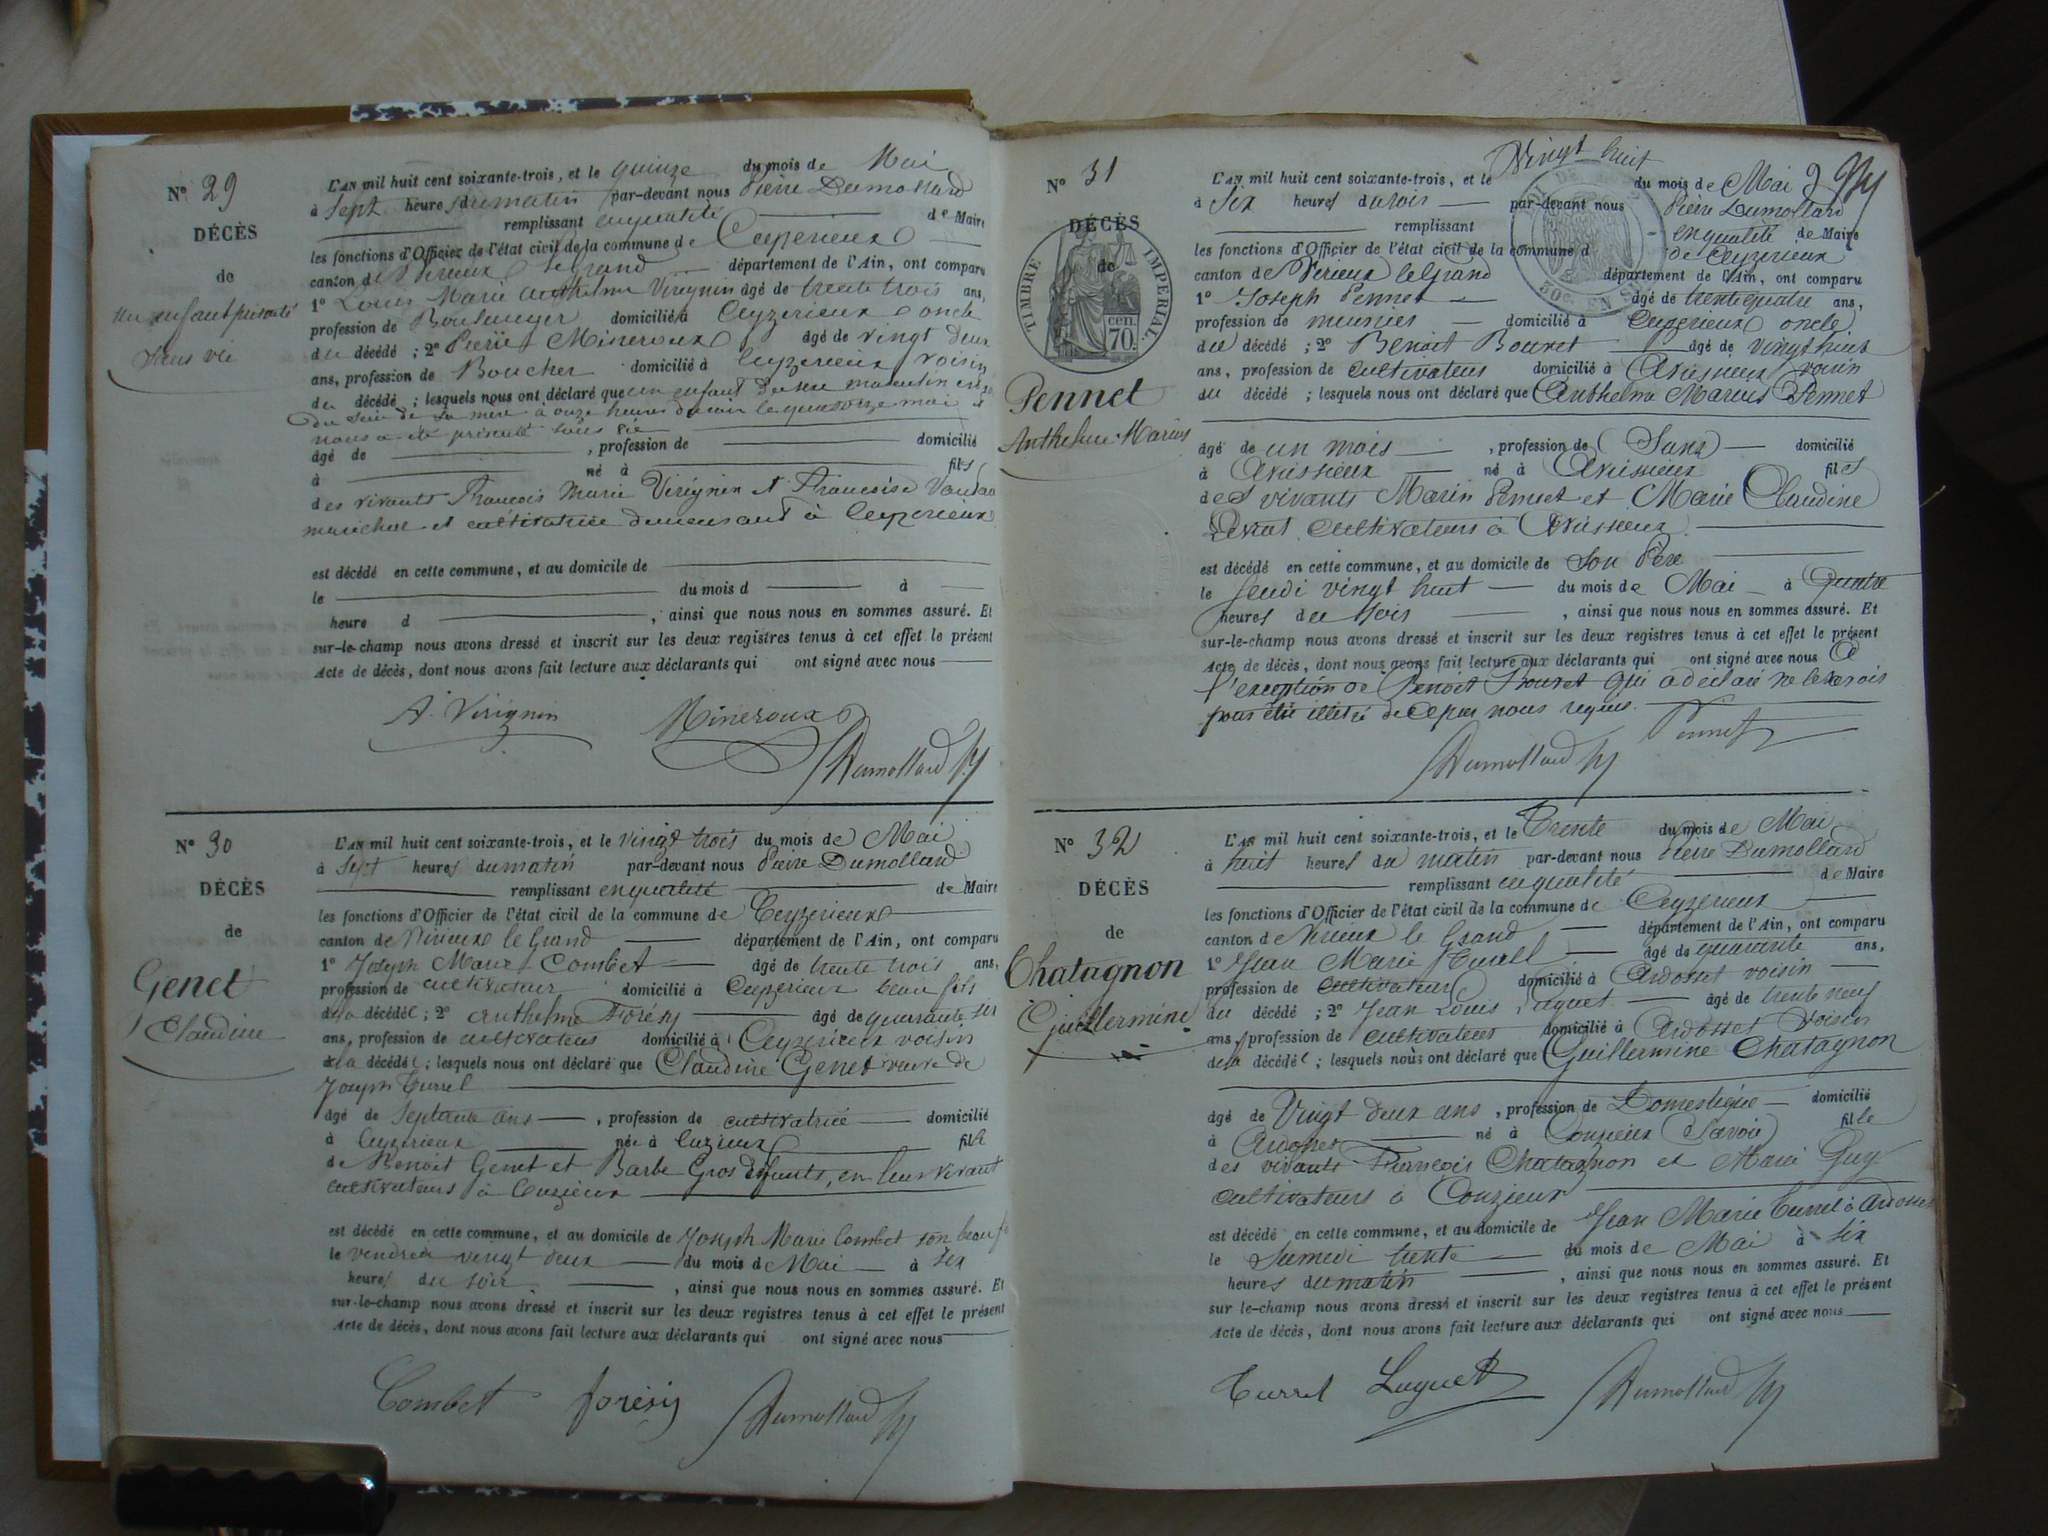 N° 29
DÉCÈS
de
un enfant présenté
sans vie
L'AN mil huit cent soixante-trois, et le quinze du mois de Mai
à sept heures du matin par-devant nous Pierre Dumollard
remplissant en qualité de Maire
les fonctions d'Officier de l'état civil de la commune de Ceyzerieux
canton de Virieux le grand département de l'Ain, ont comparu
1° Louis Marie Anthelme Virignin âgé de trente trois ans,
profession de Boulanger domicilié à Ceyzerieux oncle
du décédé ; 2° Pierre Mineroux âgé de vingt deux
ans, profession de Boucher domicilié à Ceyzerieux voisin
du décédé ; lesquels nous ont déclaré que un enfant du sexe masculin
du sein de sa mère à onze heures du soir le quatorze mai
nous a été présenté sans vie
âgé de , profession de domicilié
à né à fils
des vivants François Marie Virignin et Françoise
marichal et cultivatrice demeurant à Ceyzerieux
est décédé en cette commune, et au domicile de
le du mois d à
heure d , ainsi que nous nous en sommes assuré. Et
sur-le-champ nous avons dressé et inscrit sur les deux registres tenus à cet effet le présent
Acte de décès, dont nous avons fait lecture aux déclarants qui ont signé avec nous
A. Virignin Mineroux
Dumollard
N° 30
DÉCÈS
de
Genet
Claudine
L'AN mil huit cent soixante-trois, et le vingt trois du mois de Mai
à sept heures du matin par-devant nous Pierre Dumollard
remplissant en qualité de Maire
les fonctions d'Officier de l'état civil de la commune de Ceyzerieux
canton de Virieux le Grand département de l'Ain, ont comparu
1° Joseph Marie Combet âgé de trente trois ans,
profession de cultivateur domicilié à Ceyzerieux beau fils
de la décédée ; 2° Anthelme Forésy âgé de quarante six
ans, profession de cultivateur domicilié à Ceyzerieux voisin
de la décédée ; lesquels nous ont déclaré que Claudine Genet veuve de
Joseph Turrel
âgé de septante ans , profession de cultivatrice domicilié
à Ceyzerieux née à Cuzieux fille
de Benoit Genet et Barbe Gros défunts, en leur vivant
cultivateurs à Cuzieux
est décédé en cette commune, et au domicile de Joseph Marie Combet son beau f
le vendredi vingt deux du mois de Mai à six
heures du soir , ainsi que nous nous en sommes assuré. Et
sur-le-champ nous avons dressé et inscrit sur les deux registres tenus à cet effet le présent
Acte de décès, dont nous avons fait lecture aux déclarants qui ont signé avec nous
Combet forésy Dumollard
N° 31
DÉCÈS
de
TIMBRE IMPERIAL
70 cen.
Pennet
Anthelme Marius
L'AN mil huit cent soixante-trois, et le Vingt huit du mois de Mai
à Six heures du soir par-devant nous Pierre Dumollard
remplissant en qualité de Maire
les fonctions d'Officier de l'état civil de la commune d de Ceyzerieux
canton de Virieux le Grand département de l'Ain, ont comparu
1° Joseph Pennet âgé de trente quatre ans,
profession de meunier domicilié à Ceyzerieux oncle
du décédé ; 2° Benoit Bouvet âgé de vingt huit
ans, profession de cultivateur domicilié à Avissieux voisin
du décédé ; lesquels nous ont déclaré que Anthelme Marius Pennet
âgé de un mois , profession de (Sans) domicilié
à Avissieux né à Avissieux fils
des vivants Marin Pennet et Marie Claudine
cultivateurs à Avissieux
est décédé en cette commune, et au domicile de son Père
le Jeudi vingt huit du mois de Mai à Quatre
heures du soir , ainsi que nous nous en sommes assuré. Et
sur-le-champ nous avons dressé et inscrit sur les deux registres tenus à cet effet le présent
Acte de décès, dont nous avons fait lecture aux déclarants qui ont signé avec nous à
l'exception de Benoit Bouvet qui a déclaré ne le savoir
pour être illétré de ce par nous requis.
Pennet
Dumollard
N° 32
DÉCÈS
de
Chatagnon
Guillermine
L'AN mil huit cent soixante-trois, et le Trente du mois de Mai
à huit heures du matin par-devant nous Pierre Dumollard
remplissant en qualité de Maire
les fonctions d'Officier de l'état civil de la commune de Ceyzerieux
canton de Virieux le Grand département de l'Ain, ont comparu
1° Jean Marie Turrel âgé de quarante ans,
profession de cultivateur domicilié à Ardosset voisin
du décédé ; 2° Jean Louis Luguet âgé de trente neuf
ans, profession de cultivateur domicilié à Ardosset voisin
de la décédée ; lesquels nous ont déclaré que Guillermine Chatagnon
âgé de Vingt deux ans , profession de Domestique domicilié
à Ardosset né à Conzieux (Savoie) fille
des vivants François Chatagnon et Marie Guy
cultivateurs à Conzieux
est décédé en cette commune, et au domicile de Jean Marie Turrel à Ardosset
le Samedi trente du mois de Mai à six
heures du matin , ainsi que nous nous en sommes assuré. Et
sur le-champ nous avons dressé et inscrit sur les deux registres tenus à cet effet le présent
Acte de décès, dont nous avons fait lecture aux déclarants qui ont signé avec nous
Turrel Luguet Dumollard